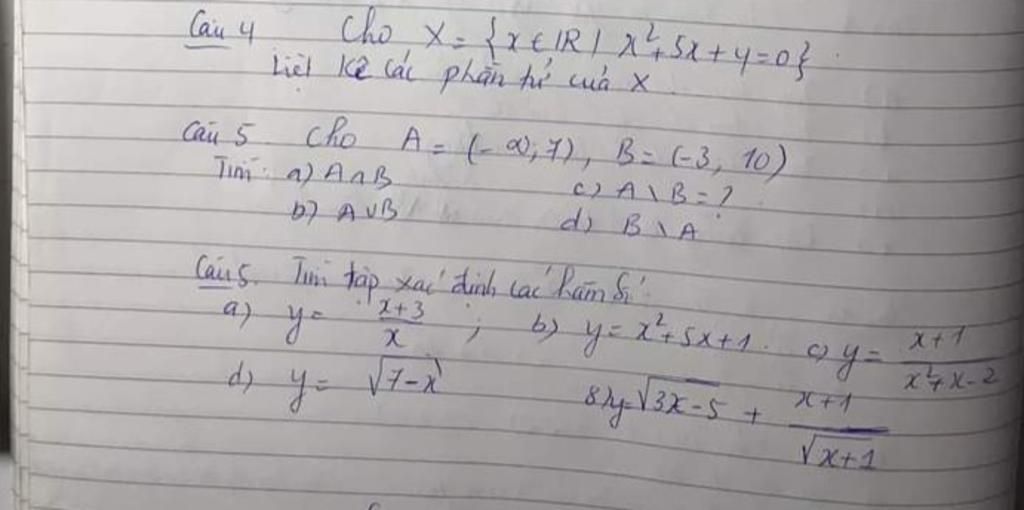 Câu 4 Cho X = {x ∈ IR | x²+5x+4=0}.
Liệt kê các phần tử của X.
Câu 5 Cho A = (-∞, 7), B = (-3, 10)
Tìm: a) A∩B c) A \ B = ?
b) A∪B d) B \ A
Câu 5. Tìm tập xác định các hàm số
a) y = \frac{x+3}{x} ; b) y = x²+5x+1. c) y = \frac{x+1}{x²+x-2}
d) y = √(7-x) 8) y = √(3x-5) + \frac{x+1}{√(x+1)}